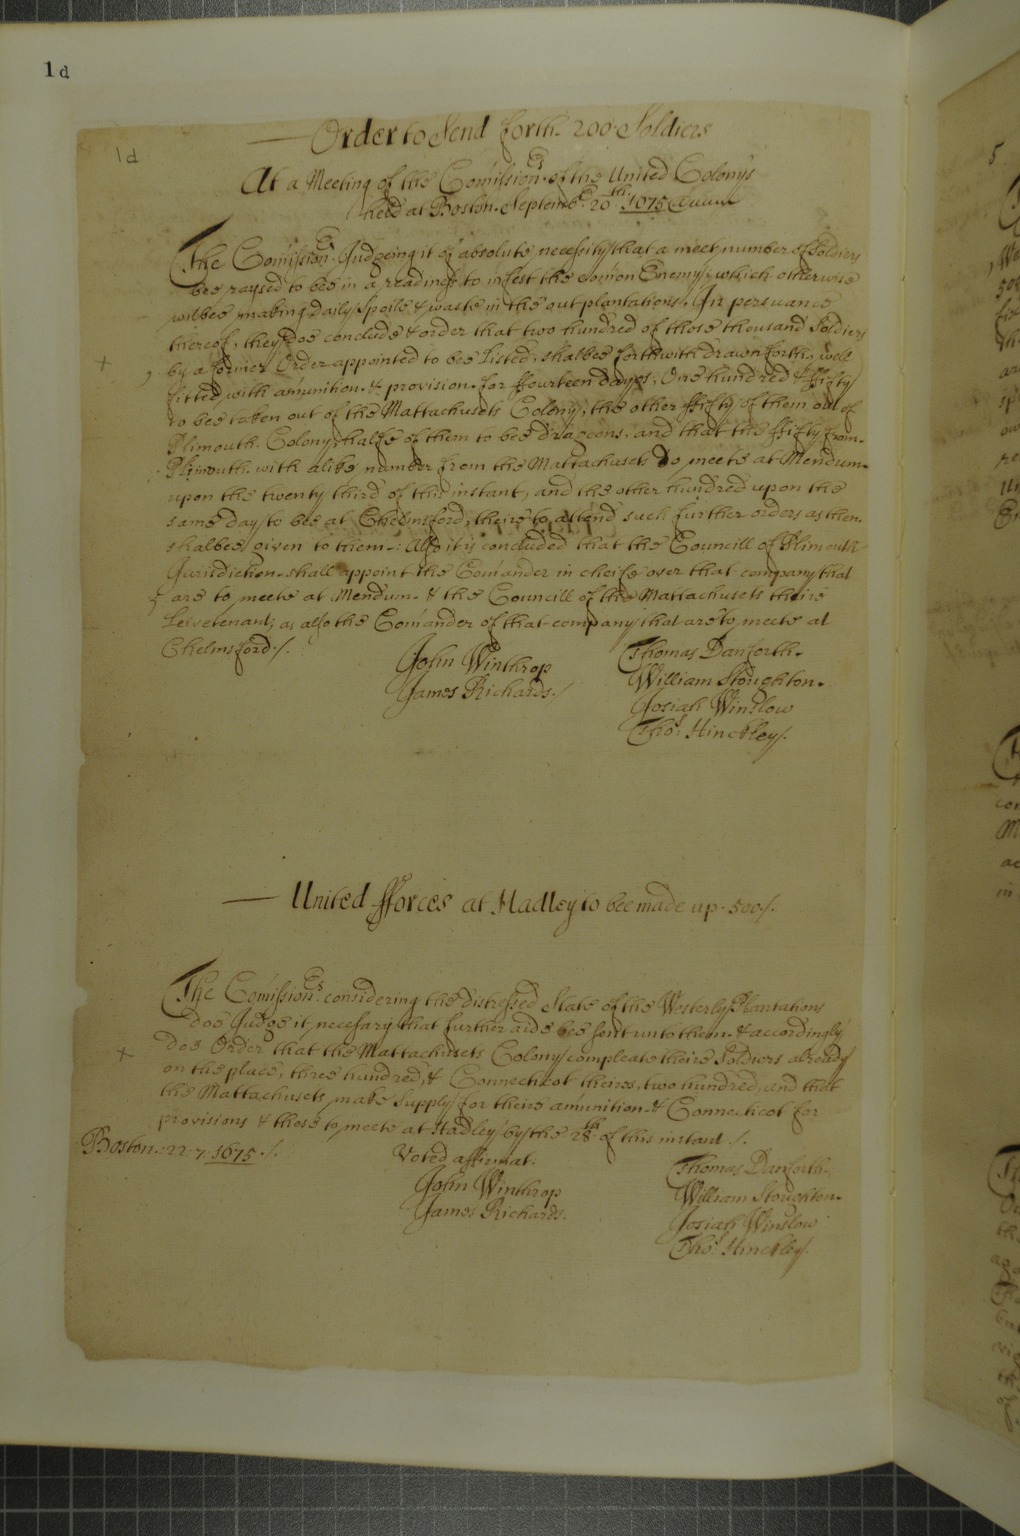 1d
1d
Order to Send forth. 200. Soldiers
At a Meeting of the Comission.ers of the United Colonys
held at Boston. Septemb.er 20th. 1675
The Comission.ers Judgeing it of absolute necessity that a meet number of Soldiers
bee raysed to bee in a readines to infest the comon Enemy, which otherwise
wilbee making daily Spoile & waste in the out plantations. In persuance
thereof, they doe conclude & order that two hundred of those thousand Soldiers
by a former Order appointed to bee Listed, shalbee forthwith drawn forth, well
fitted with amunition. & provision. for ffourteen dayes, One hundred & ffifty
to bee taken out of the Mattachusets Colony, the other ffifty of them out of
Plimouth. Colony, halfe of them to bee dragoons, and that the ffifty from.
Plimouth. with alike number from the Mattachusets Do meete at Mendum.
upon the twenty third of this instant, and the other hundred upon the
same day to bee at Chelmsford, theire to attend such further orders as then.
shalbee given to them.: Also it is concluded that the Councill of Plimouth
Jurisdiction. shall appoint the Comander in cheife over that company that
are to meete at Mendum. & the Councill of the Mattachusets theire
Leivetenant; as also the Comander of that company that are to meete at
Chelmsford./.
John Winthrop
James Richards./
Thomas Danforth.
William Stoughton.
Josiah Winslow
Tho.s Hinckley/.
United fforces at Hadley to bee made up. 500/.
The Comission.ers considering the distressed State of the Westerly Plantations
doe Judge it necesary that further aide bee sent unto them. & accordingly
doe Order that the Mattachusets Colony compleate theire Soldiers already
on the place, three hundred, & Connecticot theires, two hundred, and that
the Mattachusets make supply for theire amunition. & Connecticot for
provisions & these to meete at Hadley by the 28th. of this instant ./.
Boston.: 22. 7. 1675 ./.
Voted affirmat.
John Winthrop
James Richards.
Thomas Danforth.
William Stoughton.
Josiah Winslow
Tho.s Hinckley/.